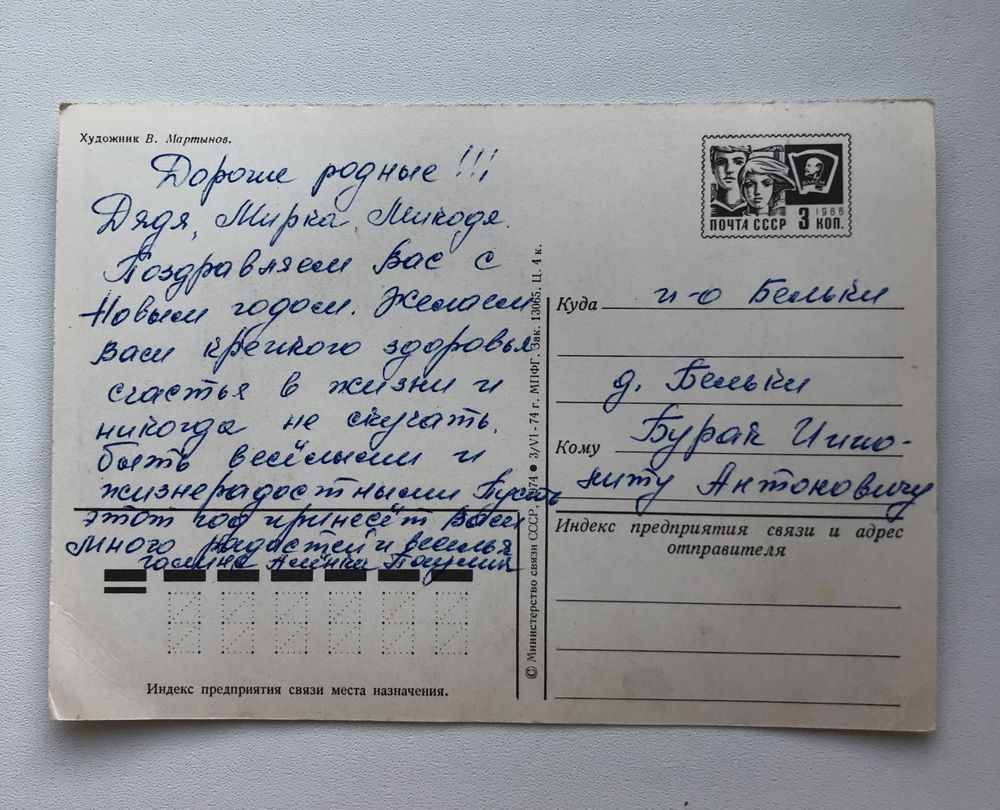 Художник В. Мартынов.
Дорогие родные!!!
Дядя, Мирка,
Поздравляем Вас с
Новым годом. Желаем
Вам крепкого здоровья
счастья в жизни и
никогда не скучать.
быть весёлыми и
жизнерадостными Пусть
этот год принесёт Вам
много радостей и веселья
Галина Алёнка
Индекс предприятия связи места назначения.
© Министерство связи СССР, 1974 ● 3/VI-74 г. МПФГ. Зак. 13065. Ц. 4 к.
ВЛКСМ
1966
ПОЧТА СССР 3 КОП.
Куда п-о Бельки
д. Бельки
Кому Бурак Иппо-
литу Антоновичу
Индекс предприятия связи и адрес
отправителя